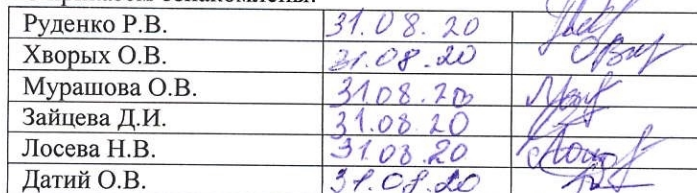 ознакомлены:
Руденко Р.В. 31.08.20
Хворых О.В. 31.08.20
Мурашова О.В. 31.08.20
Зайцева Д.И. 31.08.20
Лосева Н.В. 31.08.20
Датий О.В. 31.08.20